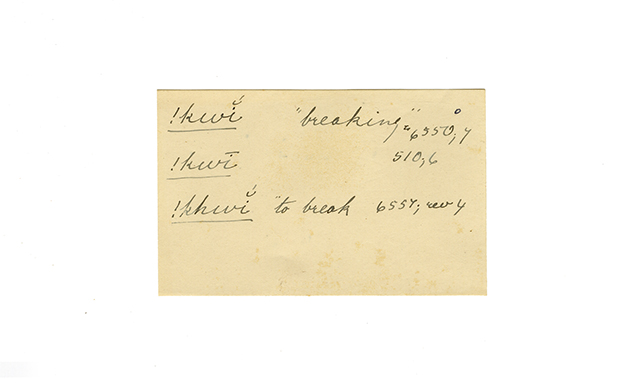 !kwĭ "breaking" 6550; 7
!kwī 510, 6
!khwĭ to break 6557; rev 4